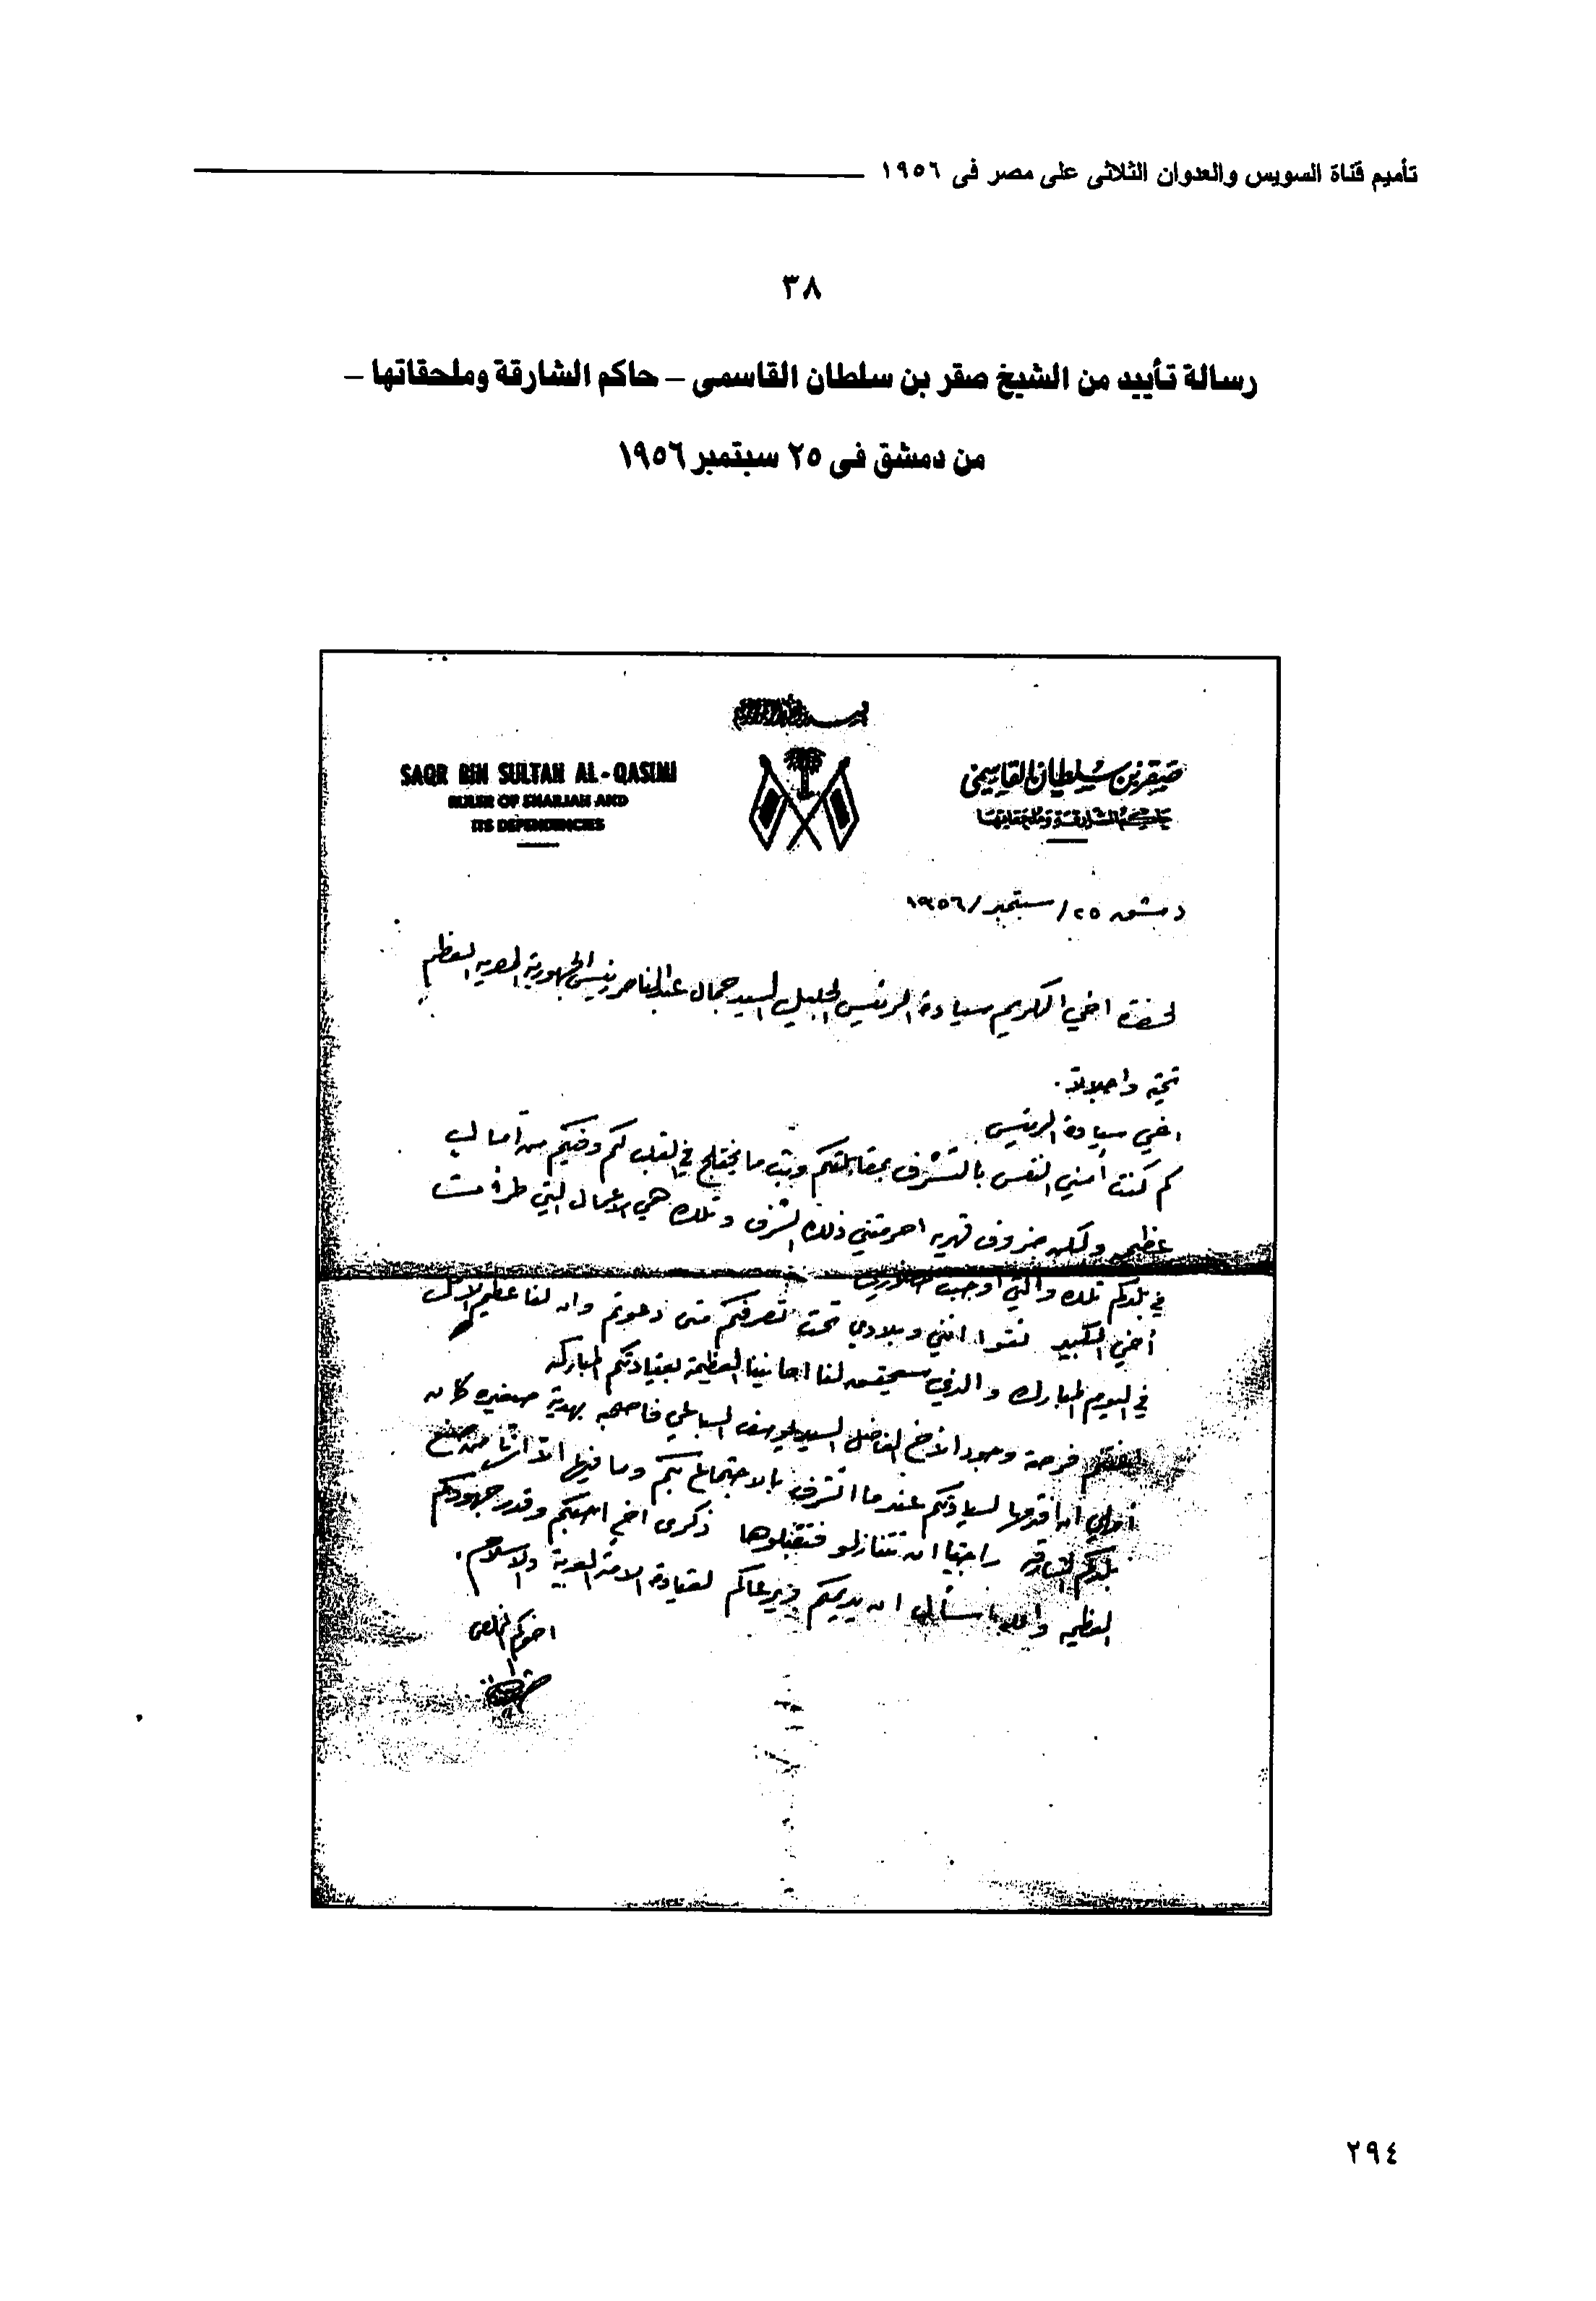 تأميم قناة السويس والعدوان الثلاثى على مصر فى ١٩٥٦
٣٨
رسالة تأييد من الشيخ صقر بن سلطان القاسمى – حاكم الشارقة وملحقاتها –
من دمشق فى ٢٥ سبتمبر ١٩٥٦
صقر بن سلطان القاسمي
حاكم الشارقة وملحقاتها
SAQR BIN SULTAN AL-QASIMI
RULER OF SHARJAH AND
ITS DEPENDENCIES
دمشق ٢٥/سبتمبر/١٩٥٦
لحضرة اخي الكريم سيادة الرئيس الجليل السيد جمال عبد الناصر رئيس الجمهورية المصريه المعظم
تحية واجلالا.
اخي سيادة الرئيس
كم كنت أمني النفس بالتشرف بمقابلتكم وبث ما يختلج في القلب لكم وفيكم من آمال
عظيمه ولكن ظروف قهريه احرمتني ذلك الشرف وتلك هي الاعمال التي طرأت
في بلدكم تلك والتي اوجبت
أخي الكبير ثقوا انني وبلادي تحت تصرفكم متى دعوتم وان لنا عظيم الامل
في اليوم المبارك والذي سيحقق لنا امانينا العظيمة بقيادتكم المباركه
اغتنم فرصة وجود الأخ الفاضل السيد يوسف السباعي بهدية صغيره كان
أملي ان اقدمها لسيادتكم عندما اتشرف بالاجتماع بكم وما فيها الا من صنع
بلدكم الشارقه راجيا ان تتنازلو فتقبلوها ذكرى اخ احبكم وقدر جهودكم
العظيمه والله اسأل ان يديمكم ويرعاكم لقيادة الامة العربية والاسلام.
اخوكم المخلص
٢٩٤